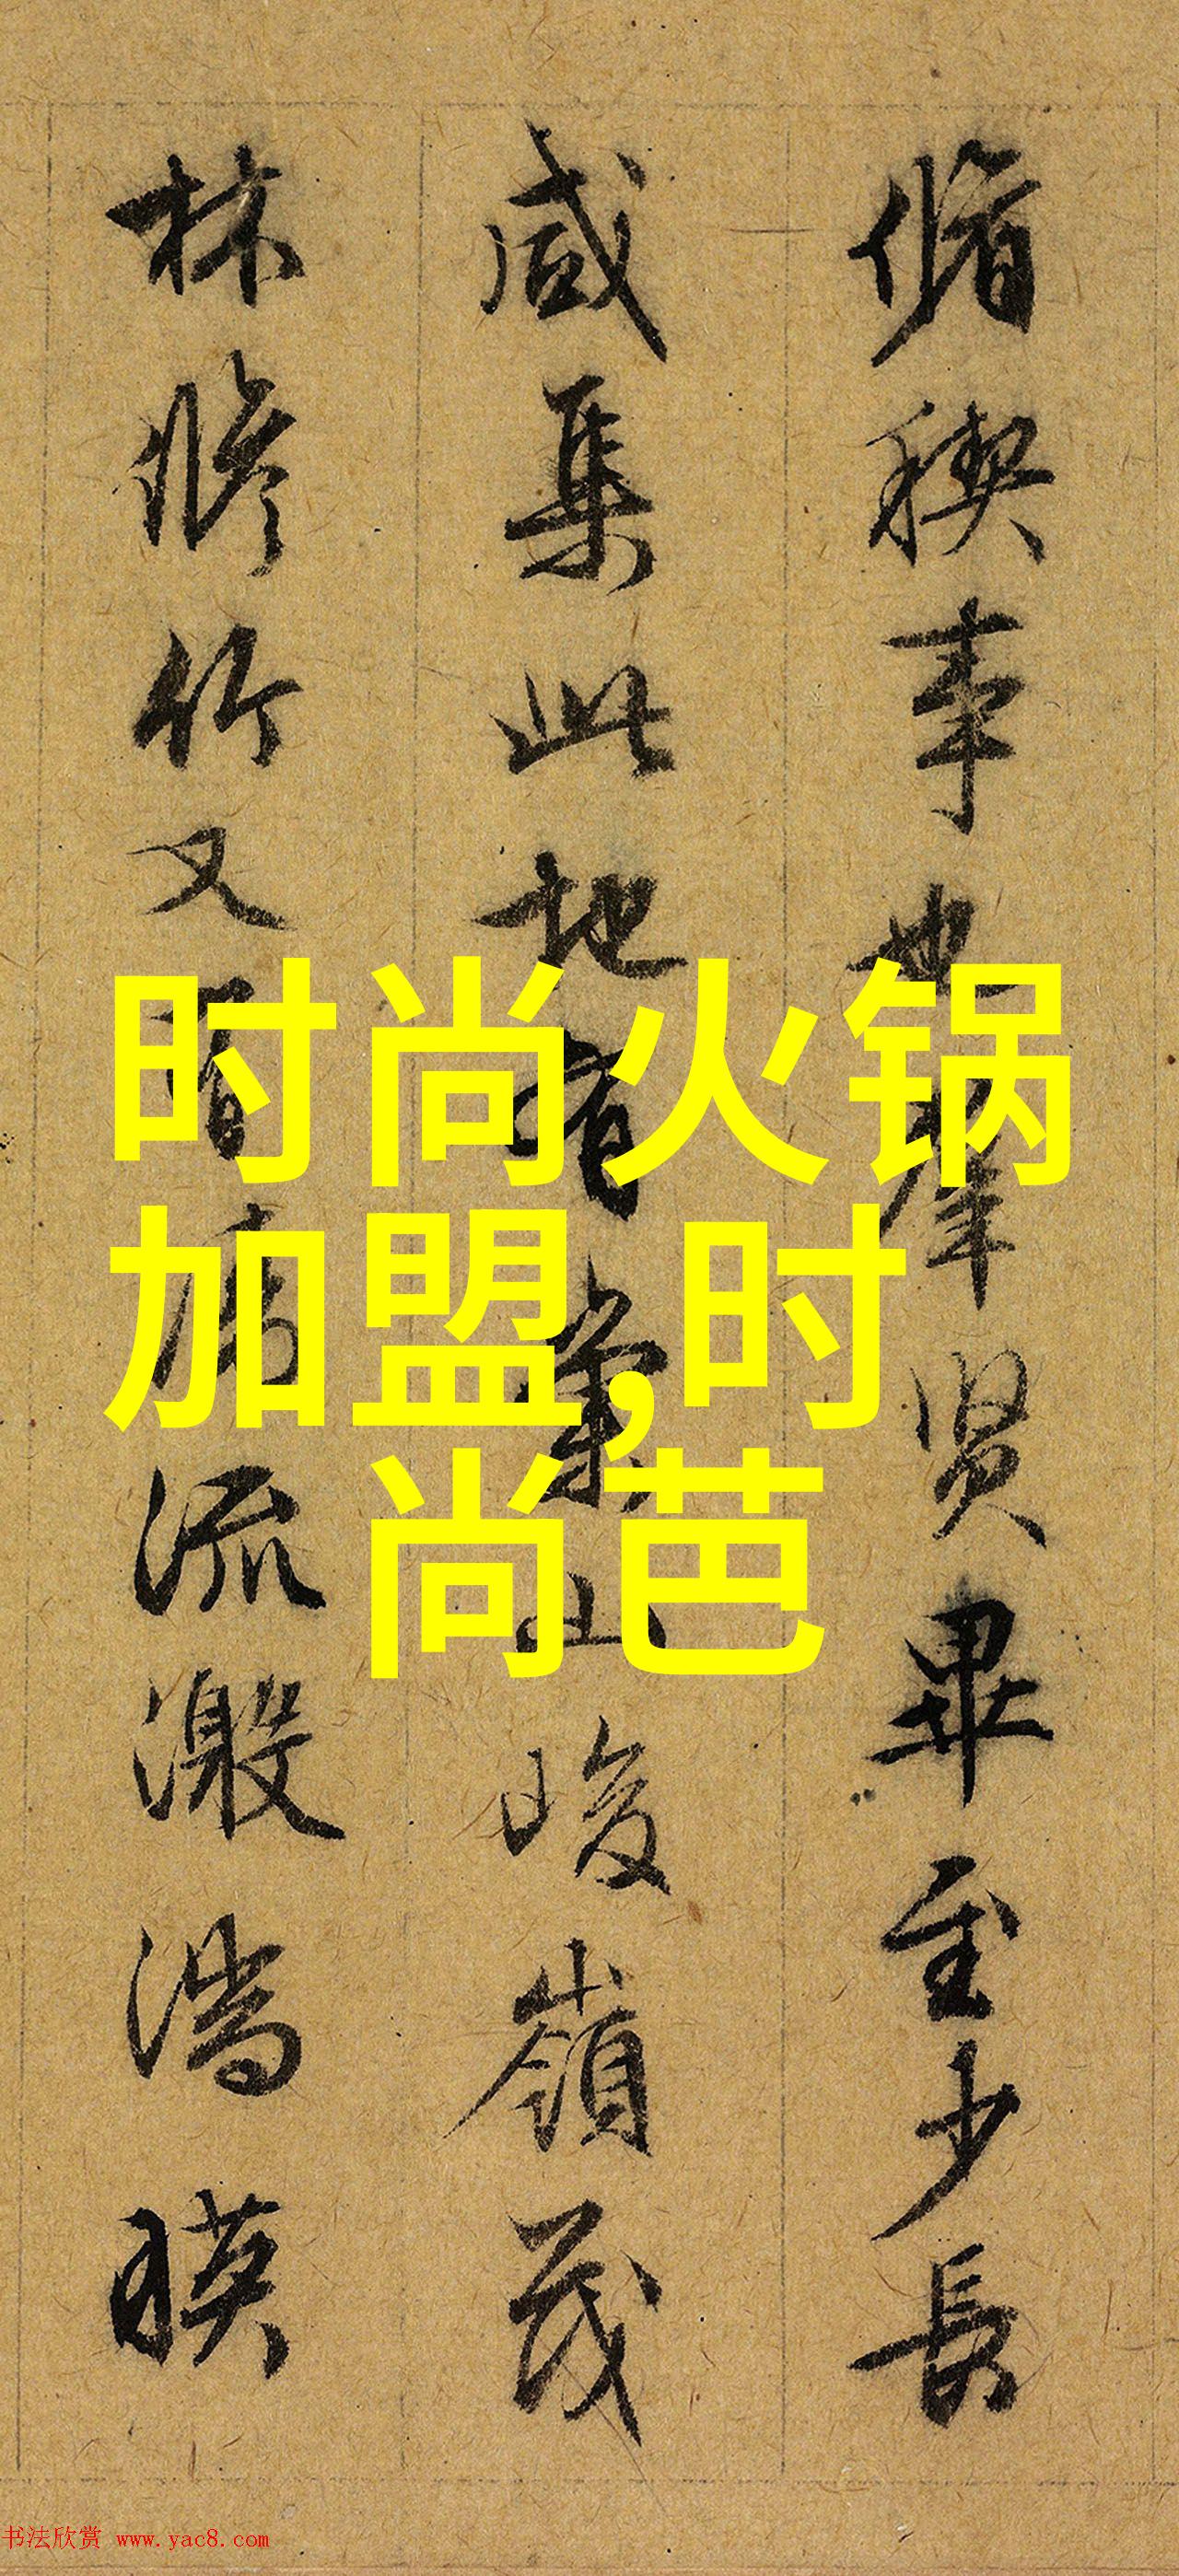 脩稧事也羣賢畢至少長
咸集此地有崇山峻嶺茂
林脩竹又有清流激湍暎
时尚火锅
加盟,时
尚芭
书法欣赏 www.yac8.com